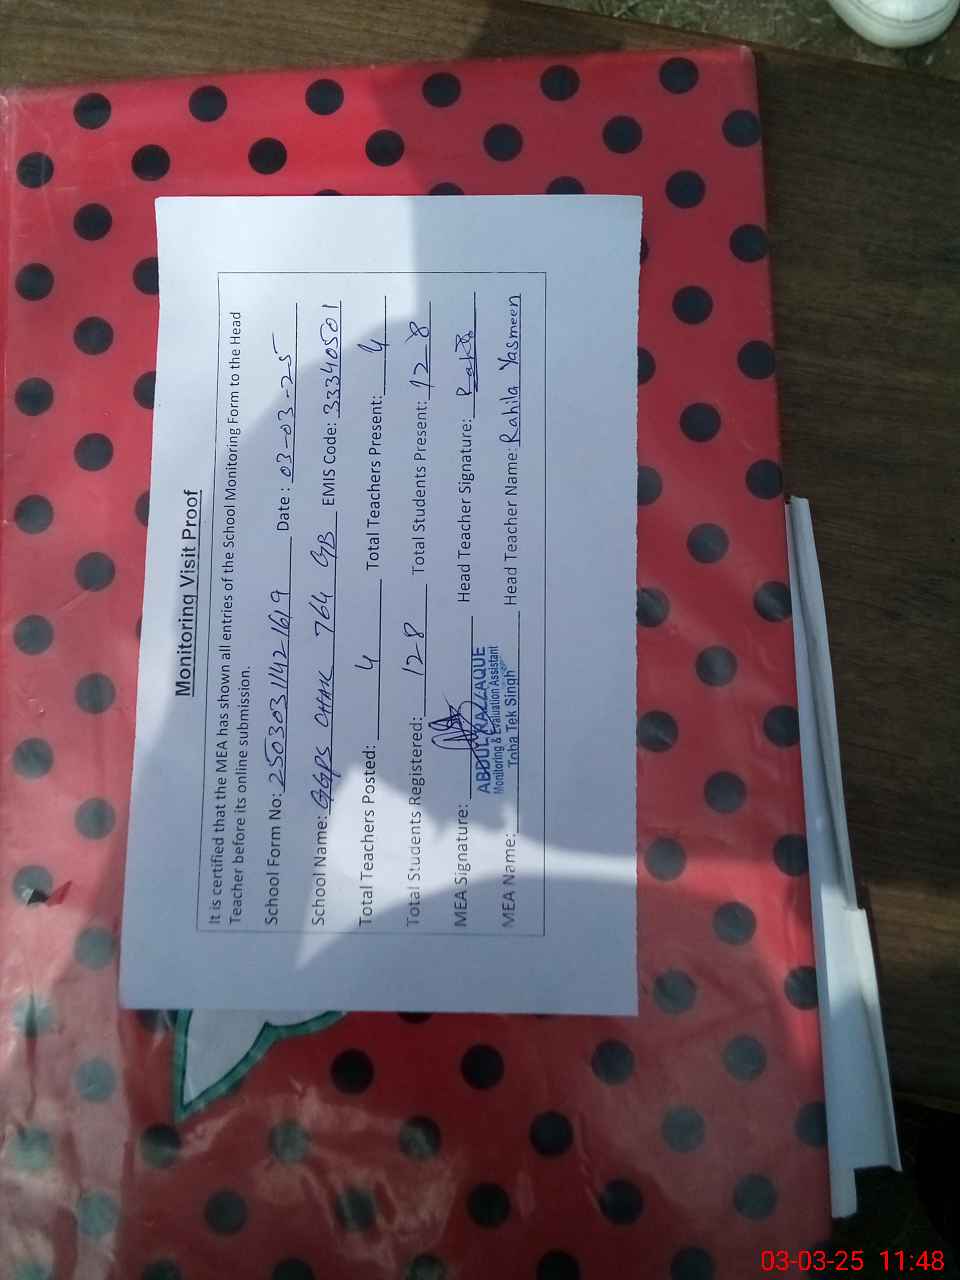 Monitoring Visit Proof
It is certified that the MEA has shown all entries of the School Monitoring Form to the Head
Teacher before its online submission.
School Form No: 250303114216 19 Date : 03-03-25
School Name: GGPS CHAK 764 GB EMIS Code: 33340501
Total Teachers Posted: 4 Total Teachers Present: 4
Total Students Registered: 128 Total Students Present: 128
MEA Signature: Head Teacher Signature:
ABDUL RAZZAQUE
Monitoring & Evaluation Assistant
Toba Tek Singh
MEA Name: Head Teacher Name: Rahila Yasmeen
03-03-25 11:48